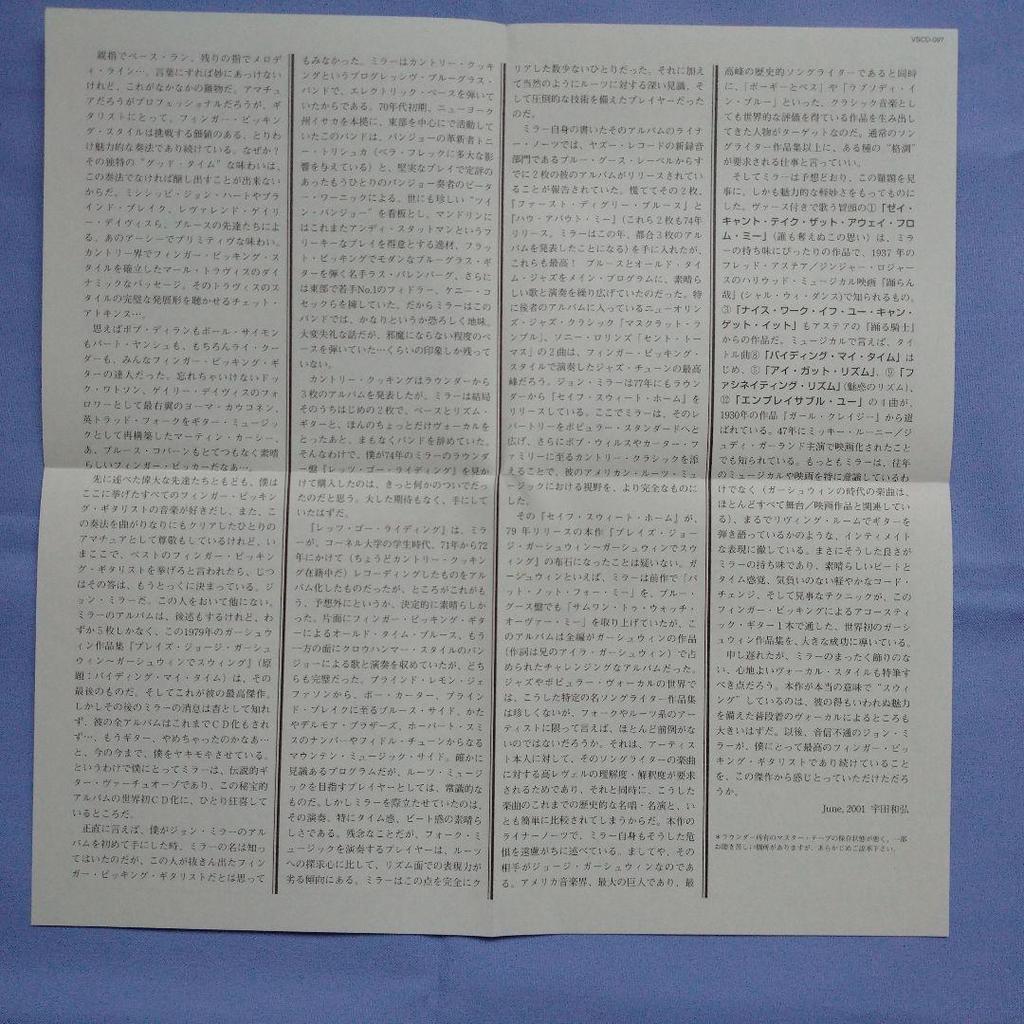 VSCD-097
親指でベース・ラン、残りの指でメロデ
ィ・ライン…。言葉にすれば妙にあっけない
けれど、これがなかなかの難物だ。アマチュ
アだろうがプロフェッショナルだろうが、ギ
タリストにとって、フィンガー・ピッキン
グ・スタイルは挑戦する価値のある、とりわ
け魅力的な奏法であり続けている。なぜか?
その独特の“グッド・タイム”な味わいは、
この奏法でなければ醸し出すことが出来ない
からだ。ミシシッピ・ジョン・ハートやブラ
インド・ブレイク、レヴァレンド・ゲイリ
ー・デイヴィスら、ブルースの先達たちによ
る、あのアーシーでプリミティヴな味わい。
カントリー界でフィンガー・ピッキング・ス
タイルを確立したマール・トラヴィスのダイ
ナミックなパッセージ。そのトラヴィスのス
タイルの完璧な発展形を聴かせるチェット・
アトキンス…。
思えばボブ・ディランもポール・サイモン
もバート・ヤンシュも、もちろんライ・クー
ダーも、みんなフィンガー・ピッキング・ギ
ターの達人だった。忘れちゃいけないドッ
ク・ワトソン、ゲイリー・デイヴィスのフォ
ロワーとして最右翼のヨーマ・カウコネン、
英トラッド・フォークをギター・ミュージッ
クとして再構築したマーティン・カーシー、
あ、ブルース・コバーンもとてつもなく素晴
らしいフィンガー・ピッカーだなあ…。
先に述べた偉大な先達たちともども、僕は
ここに挙げたすべてのフィンガー・ピッキン
グ・ギタリストの音楽が好きだし、また、こ
の奏法を曲がりなりにもクリアしたひとりの
アマチュアとして尊敬もしているけれど、い
まここで、ベストのフィンガー・ピッキン
グ・ギタリストを挙げろと言われたら、じつ
はその答は、もうとっくに決まっている。ジ
ョン・ミラーだ。この人をおいて他にない。
ミラーのアルバムは、後述もするけれど、わ
ずか5枚しかなく、この1979年のガーシュウ
ィン作品集『プレイズ・ジョージ・ガーシュ
ウィン〜ガーシュウィンでスウィング』(原
題：バイディング・マイ・タイム)は、その
最後のものだ。そしてこれが彼の最高傑作。
しかしその後のミラーの消息は杳として知れ
ず、彼の全アルバムはこれまでCD化もされ
ず…、もうギター、やめちゃったのかなあ…
と、今の今まで、僕をヤキモキさせている。
というわけで僕にとってミラーは、伝説的ギ
ター・ヴァーチュオーゾであり、この秘宝的
アルバムの世界初CD化に、ひとり狂喜して
いるところだ。
正直に言えば、僕がジョン・ミラーのアル
バムを初めて手にした時、ミラーの名は知っ
てはいたのだが、この人が抜きん出たフィン
ガー・ピッキング・ギタリストだとは思って
もみなかった。ミラーはカントリー・クッキ
ングというプログレッシヴ・ブルーグラス・
バンドで、エレクトリック・ベースを弾いて
いたからである。70年代初期、ニューヨーク
州イサカを本拠に、東部を中心にで活動して
いたこのバンドは、バンジョーの革新者トニ
ー・トリシュカ(ベラ・フレックに多大な影
響を与えている)と、堅実なプレイで定評の
あったもうひとりのバンジョー奏者のピータ
ー・ワーニックによる、世にも珍しい“ツイ
ン・バンジョー”を看板とし、マンドリンに
はこれまたアンディ・スタットマンというフ
リーキーなプレイを得意とする逸材、フラッ
ト・ピッキングでモダンなブルーグラス・ギ
ターを弾く名手ラス・バレンバーグ、さらに
は東部で若手No.1のフィドラー、ケニー・コ
セックらを擁していた。だからミラーはこの
バンドでは、かなりというか恐ろしく地味。
大変失礼な話だが、邪魔にならない程度のベ
ースを弾いていた…くらいの印象しか残って
いない。
カントリー・クッキングはラウンダーから
3枚のアルバムを発表したが、ミラーは結局
そのうちはじめの2枚で、ベースとリズム・
ギターと、ほんのちょっとだけヴォーカルを
とったあと、まもなくバンドを辞めていた。
そんなわけで、僕が74年のミラーのラウンダ
ー盤『レッツ・ゴー・ライディング』を見か
けて購入したのは、きっと何かのついでだっ
たのだと思う。大した期待もなく、手にして
いたはずだ。
『レッツ・ゴー・ライディング』は、ミラ
ーが、コーネル大学の学生時代、71年から72
年にかけて(ちょうどカントリー・クッキン
グ在籍中だ)レコーディングしたものをアル
バム化したものだったが、ところがこれがも
う、予想外にというか、決定的に素晴らしか
った。片面にフィンガー・ピッキング・ギタ
ーによるオールド・タイム・ブルース、もう
一方の面にクロウハンマー・スタイルのバン
ジョーによる歌と演奏を収めていたが、どち
らも完璧だった。ブラインド・レモン・ジェ
ファソンから、ボー・カーター、ブライン
ド・ブレイクに至るブルース・サイド、かた
やデルモア・ブラザーズ、ホーバート・スミ
スのナンバーやフィドル・チューンからなる
マウンテン・ミュージック・サイド。確かに
見識あるプログラムだが、ルーツ・ミュージ
ックを目指すプレイヤーとしては、常識的な
ものだ。しかしミラーを際立たせていたのは、
その演奏、特にタイム感、ビート感の素晴ら
しさである。残念なことだが、フォーク・ミ
ュージックを演奏するプレイヤーは、ルーツ
への探求心に比して、リズム面での表現力が
劣る傾向にある。ミラーはこの点を完全にク
リアした数少ないひとりだった。それに加え
て当然のようにルーツに対する深い見識、そ
して圧倒的な技術を備えたプレイヤーだった
のだ。
ミラー自身の書いたそのアルバムのライナ
ー・ノーツでは、ヤズー・レコードの新録音
部門であるブルー・グース・レーベルからす
でに2枚の彼のアルバムがリリースされてい
ることが報告されていた。慌ててその2枚、
『ファースト・ディグリー・ブルース』と
『ハウ・アバウト・ミー』(これら2枚も74年
リリース。ミラーはこの年、都合3枚のアル
バムを発表したことになる)を手に入れたが、
これらも最高! ブルースとオールド・タイ
ム・ジャズをメイン・プログラムに、素晴ら
しい歌と演奏を繰り広げていたのだった。特
に後者のアルバムに入っているニューオリン
ズ・ジャズ・クラシック「マスクラット・ラ
ンブル」、ソニー・ロリンズ「セント・トー
マス」の2曲は、フィンガー・ピッキング・
スタイルで演奏したジャズ・チューンの最高
峰だろう。ジョン・ミラーは77年にもラウン
ダーから『セイフ・スウィート・ホーム』を
リリースしている。ここでミラーは、そのレ
パートリーをポピュラー・スタンダードへと
広げ、さらにボブ・ウィルスやカーター・フ
ァミリーに至るカントリー・クラシックを添
えることで、彼のアメリカン・ルーツ・ミュ
ージックにおける視野を、より完全なものに
した。
その『セイフ・スウィート・ホーム』が、
79年リリースの本作『プレイズ・ジョー
ジ・ガーシュウィン〜ガーシュウィンでスウ
ィング』の布石になったことは疑いない。ガ
ーシュウィンといえば、ミラーは前作で「バ
ット・ノット・フォー・ミー」を、ブルー・
グース盤でも「サムワン・トゥ・ウォッチ・
オーヴァー・ミー」を取り上げていたが、こ
のアルバムは全編がガーシュウィンの作品
(作詞は兄のアイラ・ガーシュウィン)で占
められたチャレンジングなアルバムだった。
ジャズやポピュラー・ヴォーカルの世界で
は、こうした特定の名ソングライター作品集
は珍しくないが、フォークやルーツ系のアー
ティストに限って言えば、ほとんど前例がな
いのではないだろうか。それは、アーティス
ト本人に対して、そのソングライターの楽曲
に対する高レヴェルの理解度・解釈度が要求
されるためであり、それと同時に、こうした
楽曲のこれまでの歴史的な名唱・名演と、い
とも簡単に比較されてしまうからだ。本作の
ライナーノーツで、ミラー自身もそうした危
惧を遠慮がちに述べている。ましてや、その
相手がジョージ・ガーシュウィンなのであ
る。アメリカ音楽界、最大の巨人であり、最
高峰の歴史的ソングライターであると同時
に、「ポーギーとベス」や「ラプソディ・イ
ン・ブルー」といった、クラシック音楽とし
ても世界的な評価を得ている作品を生み出
してきた人物がターゲットなのだ。通常のソン
グライター作品集以上に、ある種の“格調”
が要求される仕事と言っていい。
そしてミラーは予想どおり、この難題を見
事に、しかも魅力的な軽妙さをもってものに
した。ヴァース付きで歌う冒頭の①「ゼイ・
キャント・テイク・ザット・アウェイ・フロ
ム・ミー」(誰も奪えぬこの思い)は、ミラ
ーの持ち味にぴったりの作品で、1937年の
フレッド・アステア/ジンジャー・ロジャー
スのハリウッド・ミュージカル映画『踊らん
哉』(シャル・ウィ・ダンス)で知られるもの。
③「ナイス・ワーク・イフ・ユー・キャン・
ゲット・イット」もアステアの『踊る騎士』
からの作品だ。ミュージカルで言えば、タイ
トル曲⑧「バイディング・マイ・タイム」は
じめ、⑤「アイ・ガット・リズム」、⑨「フ
ァシネイティング・リズム」(魅惑のリズム)、
⑫「エンブレイサブル・ユー」の4曲が、
1930年の作品『ガール・クレイジー』から選
ばれている。47年にミッキー・ルーニー/ジ
ュディ・ガーランド主演で映画化されたこと
でも知られている。もっともミラーは、往年
のミュージカルや映画を特に意識しているわ
けでなく(ガーシュウィンの時代の楽曲は、
ほとんどすべて舞台/映画作品と関連してい
る)、まるでリヴィング・ルームでギターを
弾き語っているかのような、インティメイト
な表現に徹している。まさにそうした良さが
ミラーの持ち味であり、素晴らしいビートと
タイム感覚、気負いのない軽やかなコード・
チェンジ、そして見事なテクニックが、この
フィンガー・ピッキングによるアコースティ
ック・ギター1本で通した、世界初のガーシ
ュウィン作品集を、大きな成功に導いている。
申し遅れたが、ミラーのまったく飾りのな
い、心地よいヴォーカル・スタイルも特筆す
べき点だろう。本作が本当の意味で“スウィ
ング”しているのは、彼の得もいわれぬ魅力
を備えた普段着のヴォーカルによるところも
大きいはずだ。以後、音信不通のジョン・ミ
ラーが、僕にとって最高のフィンガー・ピッ
キング・ギタリストであり続けていること
を、この傑作から感じとっていただけただろ
うか。
June, 2001 宇田和弘
＊ラウンダー所有のマスター・テープの保存状態が悪く、一部
お聞き苦しい個所がありますが、あらかじめご諒承下さい。